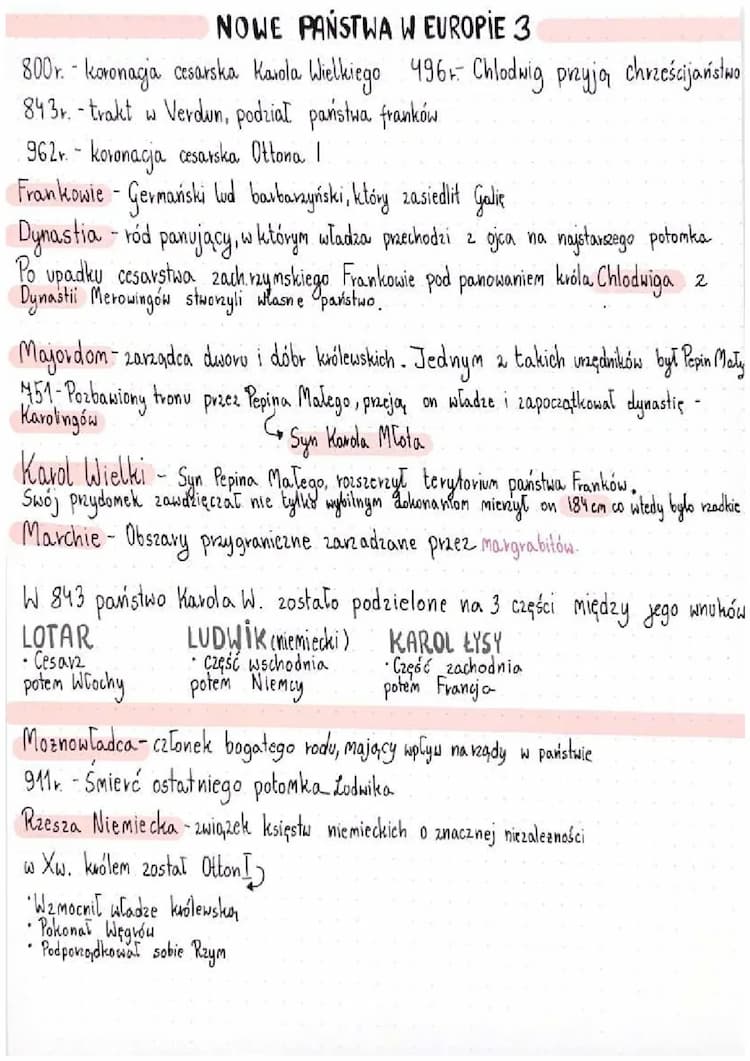 NOWE PAŃSTWA W EUROPIE 3
800r. - koronacja cesarska Karola Wielkiego 496r.- Chlodwig przyją chrześcijaństwo
843r. - trakt w Verdun, podział państwa franków
962r. - koronacja cesarska Ottona I
Frankowie - Germański lud barbarzyński, który zasiedlił Galię
Dynastia - ród panujący, w którym władza przechodzi z ojca na najstarszego potomka
Po upadku cesarstwa zach. rzymskiego Frankowie pod panowaniem króla Chlodwiga z
Dynastii Merowingów stworzyli własne państwo.
Majordom - zarządca dworu i dóbr królewskich. Jednym z takich urzędników był Pepin Mały
751 - Pozbawiony tronu przez Pepina Małego, przeją on władze i zapoczątkował dynastię -
Karolingów
Syn Karola Młota
Karol Wielki - Syn Pepina Małego, rozszerzył terytorium państwa Franków.
Swój przydomek zawdzięczał nie tylko wybilnym dokonaniom mierzył on 184 cm co wtedy było rzadkie
Marchie - Obszary przygraniczne zarzadzane przez margrabiów.
W 843 państwo Karola W. zostało podzielone na 3 części między jego wnuków
LOTAR LUDWIK (niemiecki) KAROL ŁYSY
• Cesarz • część wschodnia • Część zachodnia
potem Włochy potem Niemcy potem Francja
Możnowładca - członek bogatego rodu, mający wpływ na rządy w państwie
911r. - Śmierć ostatniego potomka Ludwika
Rzesza Niemiecka - związek księstw niemieckich o znacznej niezależności
w Xw. królem został Otton I
• Wzmocnił władze królewską
• Pokonał Węgrów
• Podporządkował sobie Rzym